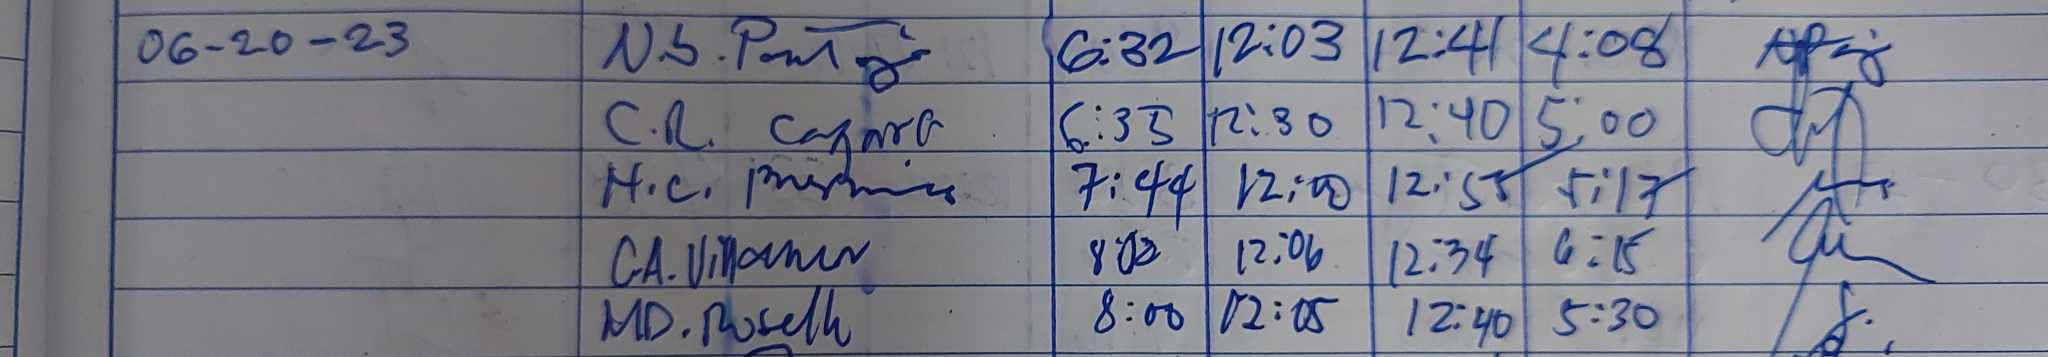 06-20-23 N.S. 6:32 12:03 12:41 4:08
C.R. 6:35 12:30 12:40 5:00
H.C. 7:44 12:00 12:55 5:17
CA. Villamor 8:02 12:06 12:34 6:15
MD. Roselli 8:00 12:05 12:40 5:30